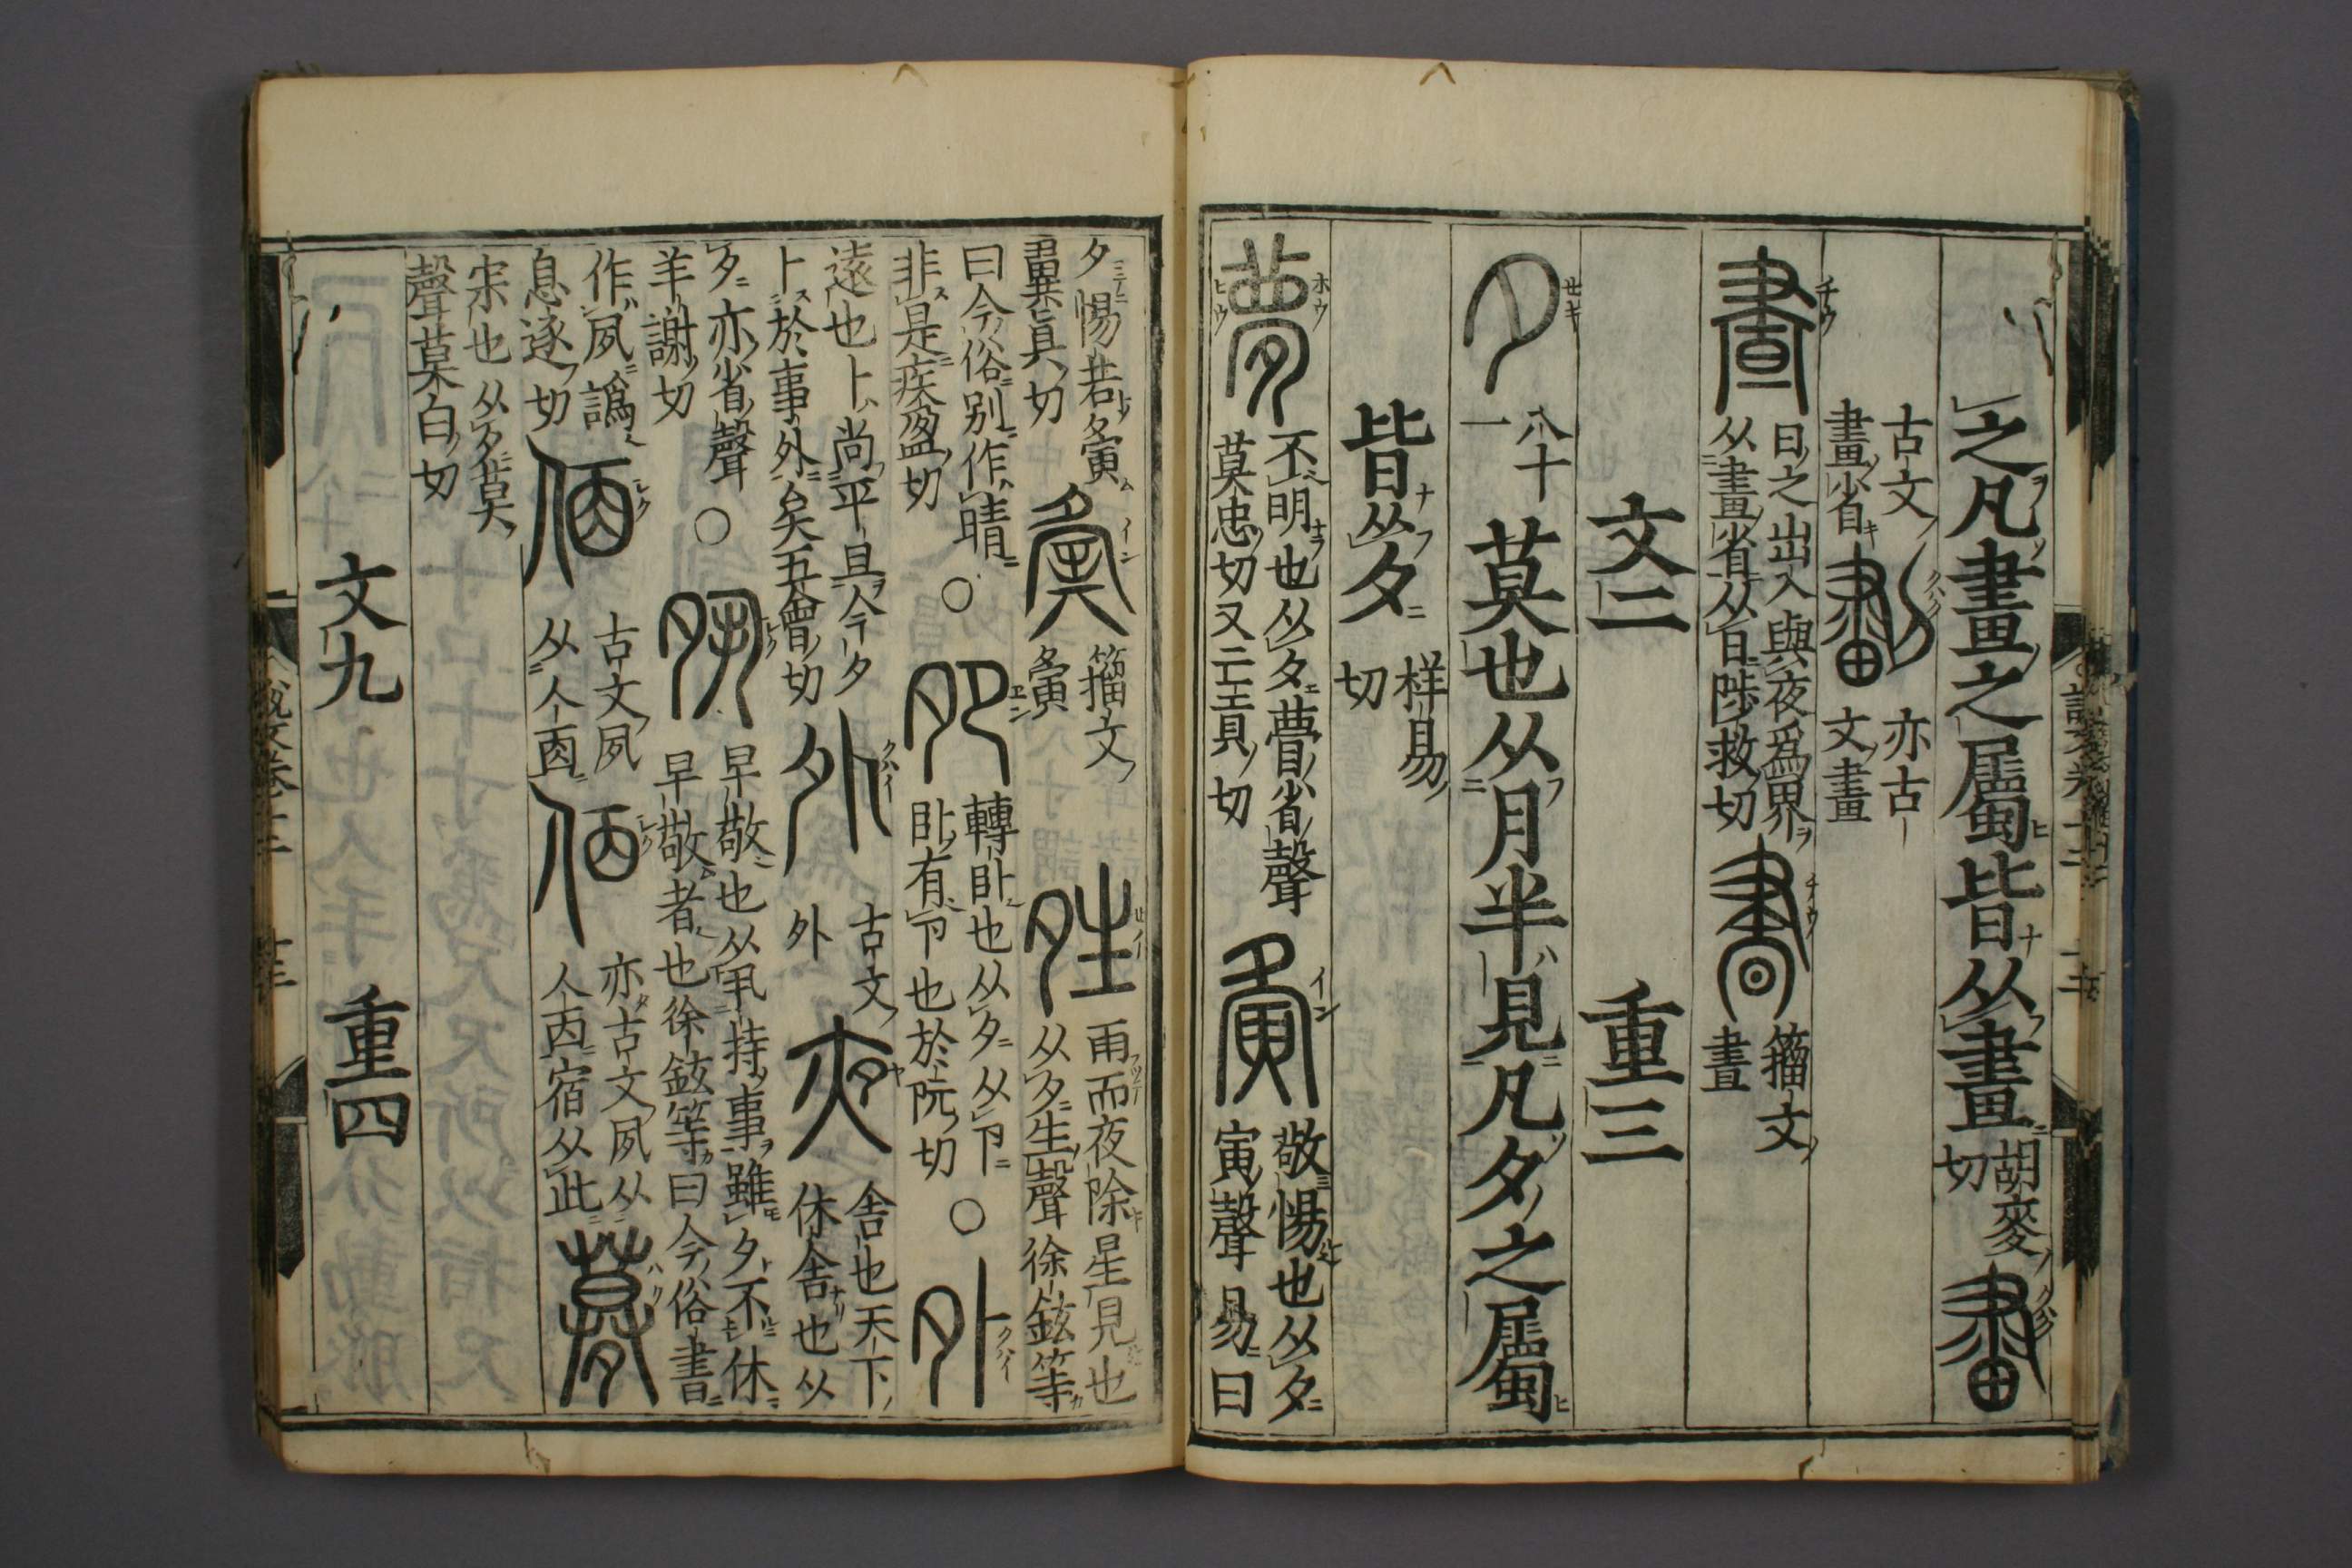 之凡畫之屬皆从畫 胡麥切 畫
古文畫省 劃 亦古文畫
晝 日之出入與夜爲界从畫省从日陟救切 晝 籀文晝
文二 重三
夕 八十一 莫也从月半見凡夕之屬
皆从夕 样易切
夢 不明也从夕瞢省聲莫忠切又亡貢切 夤 敬惕也从夕寅聲易曰
夕惕若夤翼眞切 夤 籀文夤 夝 雨而夜除星見也从夕生聲徐鉉等
曰今俗別作晴非是疾盈切 〇 夗 轉臥也从夕从卪臥有卪也於阮切 〇 外
遠也卜尚平旦今夕卜於事外矣五會切 外 古文外 夜 舍也天下休舍也从
夕亦省聲羊謝切 〇 夙 早敬也从丮持事雖夕不休早敬者也徐鉉等曰今俗書
作夙譌息逐切 㑉 古文夙从人㐁 㐽 亦古文夙从人㐁宿从此 夢
宋也从夕莫聲莫白切
文九 重四